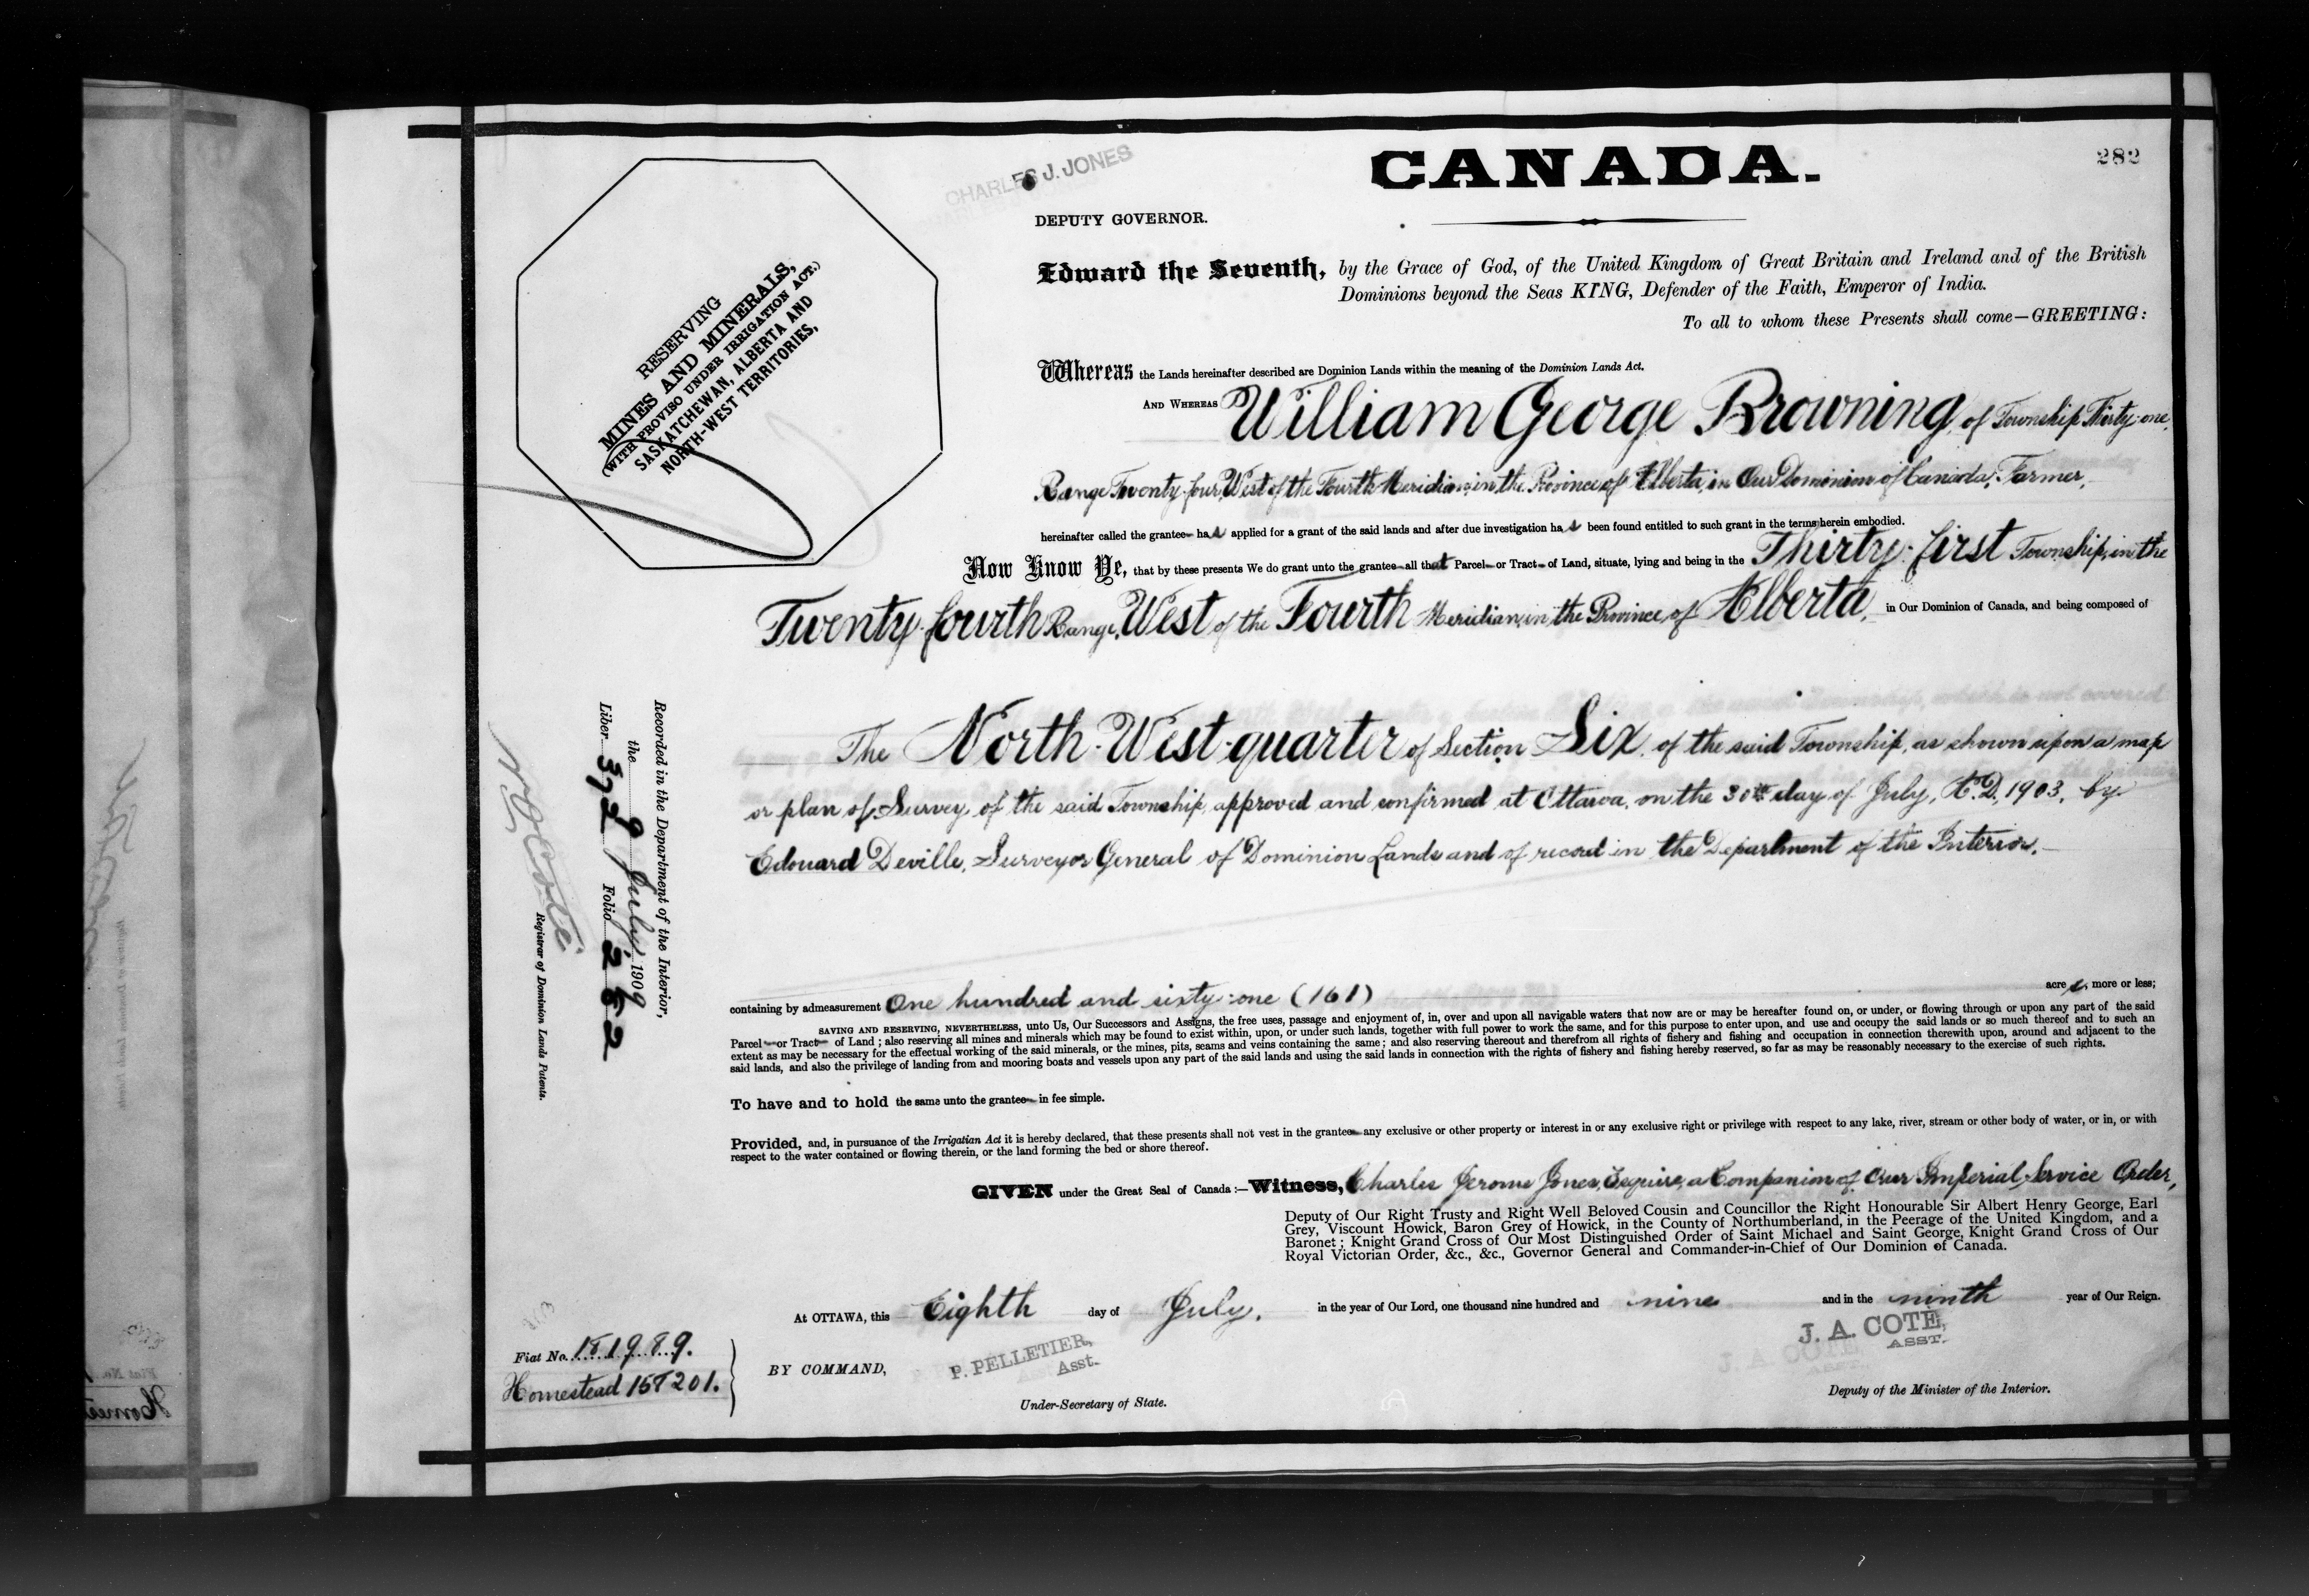 CANADA.
282
CHARLES J. JONES
DEPUTY GOVERNOR.
Edward the Seventh, by the Grace of God, of the United Kingdom of Great Britain and Ireland and of the British
Dominions beyond the Seas KING, Defender of the Faith, Emperor of India.
To all to whom these Presents shall come—GREETING:
RESERVING
MINES AND MINERALS,
(WITH PROVISO UNDER IRRIGATION ACT.)
SASKATCHEWAN, ALBERTA AND
NORTH-WEST TERRITORIES,
Whereas the Lands hereinafter described are Dominion Lands within the meaning of the Dominion Lands Act.
AND WHEREAS William George Browning, of Township Thirty-one,
Range Twenty-four, West of the Fourth Meridian, in the Province of Alberta, in Our Dominion of Canada, Farmer,
hereinafter called the grantee has applied for a grant of the said lands and after due investigation has been found entitled to such grant in the terms herein embodied.
Now Know Ye, that by these presents We do grant unto the grantee all that Parcel or Tract of Land, situate, lying and being in the Thirty-first Township, in the
Twenty-fourth Range, West of the Fourth Meridian, in the Province of Alberta, in Our Dominion of Canada, and being composed of
The North-West-quarter of Section Six, of the said Township, as shown upon a map
or plan of Survey of the said Township, approved and confirmed at Ottawa, on the 30th day of July, A.D. 1903, by
Edouard Deville, Surveyor General of Dominion Lands and of record in the Department of the Interior.
containing by admeasurement One hundred and sixty-one (161) acres, more or less;
SAVING AND RESERVING, NEVERTHELESS, unto Us, Our Successors and Assigns, the free uses, passage and enjoyment of, in, over and upon all navigable waters that now are or may be hereafter found on, or under, or flowing through or upon any part of the said
Parcel or Tract of Land; also reserving all mines and minerals which may be found to exist within, upon, or under such lands, together with full power to work the same, and for this purpose to enter upon, and use and occupy the said lands or so much thereof and to such an
extent as may be necessary for the effectual working of the said minerals, or the mines, pits, seams and veins containing the same; and also reserving thereout and therefrom all rights of fishery and fishing and occupation in connection therewith upon, around and adjacent to the
said lands, and also the privilege of landing from and mooring boats and vessels upon any part of the said lands and using the said lands in connection with the rights of fishery and fishing hereby reserved, so far as may be reasonably necessary to the exercise of such rights.
To have and to hold the same unto the grantee in fee simple.
Provided, and, in pursuance of the Irrigation Act it is hereby declared, that these presents shall not vest in the grantee any exclusive or other property or interest in or any exclusive right or privilege with respect to any lake, river, stream or other body of water, or in, or with
respect to the water contained or flowing therein, or the land forming the bed or shore thereof.
GIVEN under the Great Seal of Canada:—Witness, Charles Jerome Jones, Esquire, a Companion of Our Imperial Service Order,
Deputy of Our Right Trusty and Right Well Beloved Cousin and Councillor the Right Honourable Sir Albert Henry George, Earl
Grey, Viscount Howick, Baron Grey of Howick, in the County of Northumberland, in the Peerage of the United Kingdom, and a
Baronet; Knight Grand Cross of Our Most Distinguished Order of Saint Michael and Saint George, Knight Grand Cross of Our
Royal Victorian Order, &c., &c., Governor General and Commander-in-Chief of Our Dominion of Canada.
At OTTAWA, this Eighth day of July, in the year of Our Lord, one thousand nine hundred and nine and in the ninth year of Our Reign.
BY COMMAND,
P. PELLETIER,
Asst.
Under-Secretary of State.
J. A. COTE,
ASST.
Deputy of the Minister of the Interior.
Fiat No. 181989.
Homestead 158201.
Recorded in the Department of the Interior,
the 9 July, 1909
Liber 372 Folio 262
N O Coté
Registrar of Dominion Lands Patents.